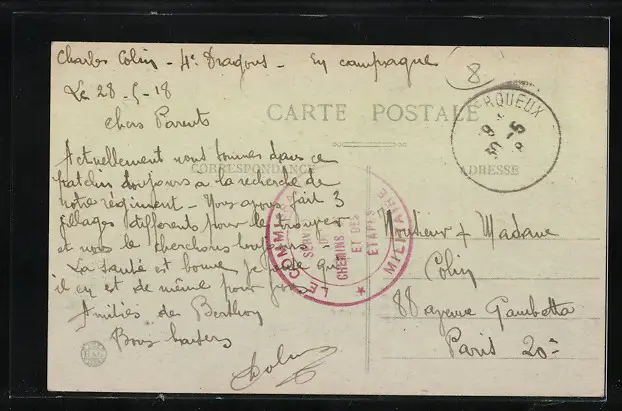 Charles Colin - 4e Dragons - En campagne
8
Le 28-5-18
CARTE POSTALE
Chers Parents
CORRESPONDANCE
ADRESSE
Actuellement nous sommes dans ce
patelin toujours a la recherche de
notre régiment - Nous avons fait 3
villages différents pour le trouver
et nous le cherchons toujours
La santé est bonne je pense qu'
il en est de même pour vous
Amitiés de Berthoy
Bons baisers
Colin
Monsieur & Madame
Colin
88 avenue Gambetta
Paris 20e
SERQUEUX
LE COMMISSAIRE MILITAIRE
CHEMINS
ET DES
ETAPES